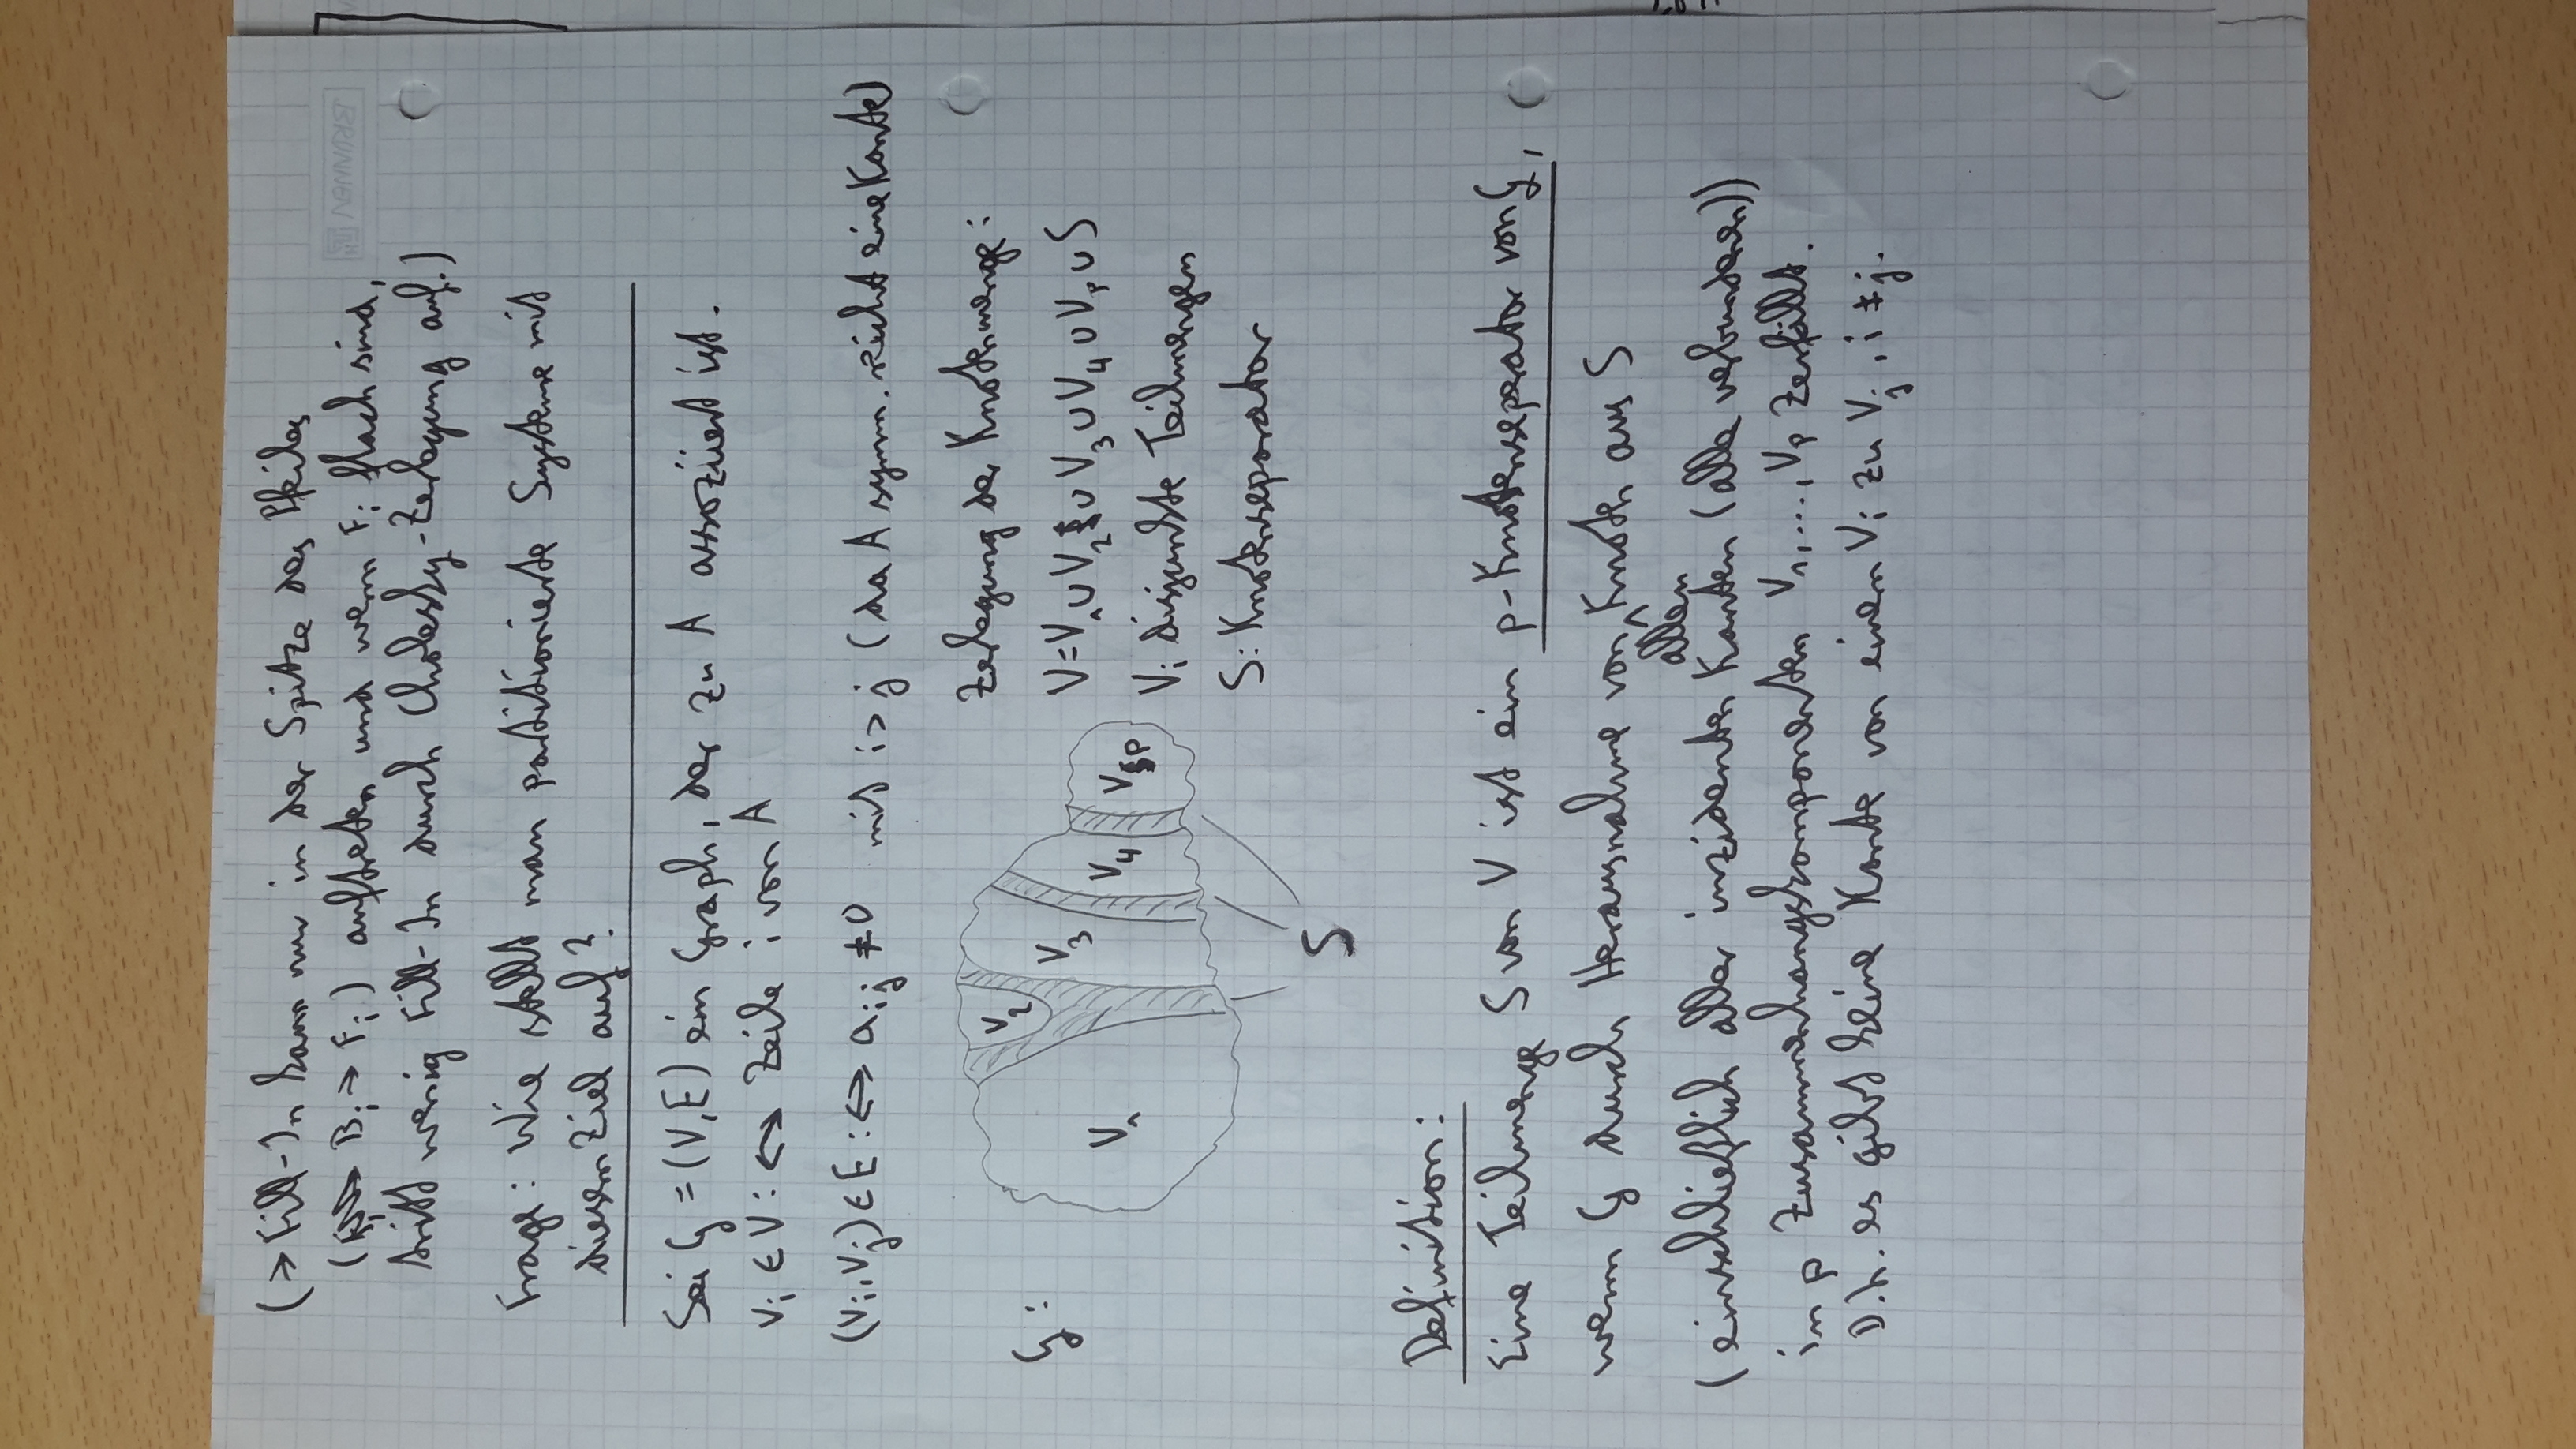 BRUNNEN
(→ Fill-In kann nur in der Spitze des Pfeiles
( B_i → F_i) auftreten und wenn F_i flach sind,
tritt wenig Fill-In durch Cholesky-Zerlegung auf.)
Frage: Wie stellt man partitionierte Systeme mit
diesem Ziel auf?
Sei G = (V,E) ein Graph, der zu A assoziiert ist.
V_i ∈ V :⇔ Zeile i von A
(V_i,V_j) ∈ E :⇔ a_ij ≠ 0 mit i > j (da A symm. reicht eine Kante)
G:
V_1
V_2
V_3
V_4
V_p
S
Zerlegung der Knotenmenge:
V = V_1 ∪ V_2 ∪ V_3 ∪ V_4 ∪ V_p ∪ S
V_i disjunkte Teilmengen
S: Knotenseparator
Definition:
Eine Teilmenge S von V ist ein p-Knotenseperator von G,
wenn G durch Herausnahme von allen Knoten aus S
(einschließlich aller inzidenten Kanten (alle verbundenen))
in p Zusammenhangskomponenten V_1,...,V_p zerfällt.
D.h. es gibt keine Kante von einem V_i zu V_j, i ≠ j.